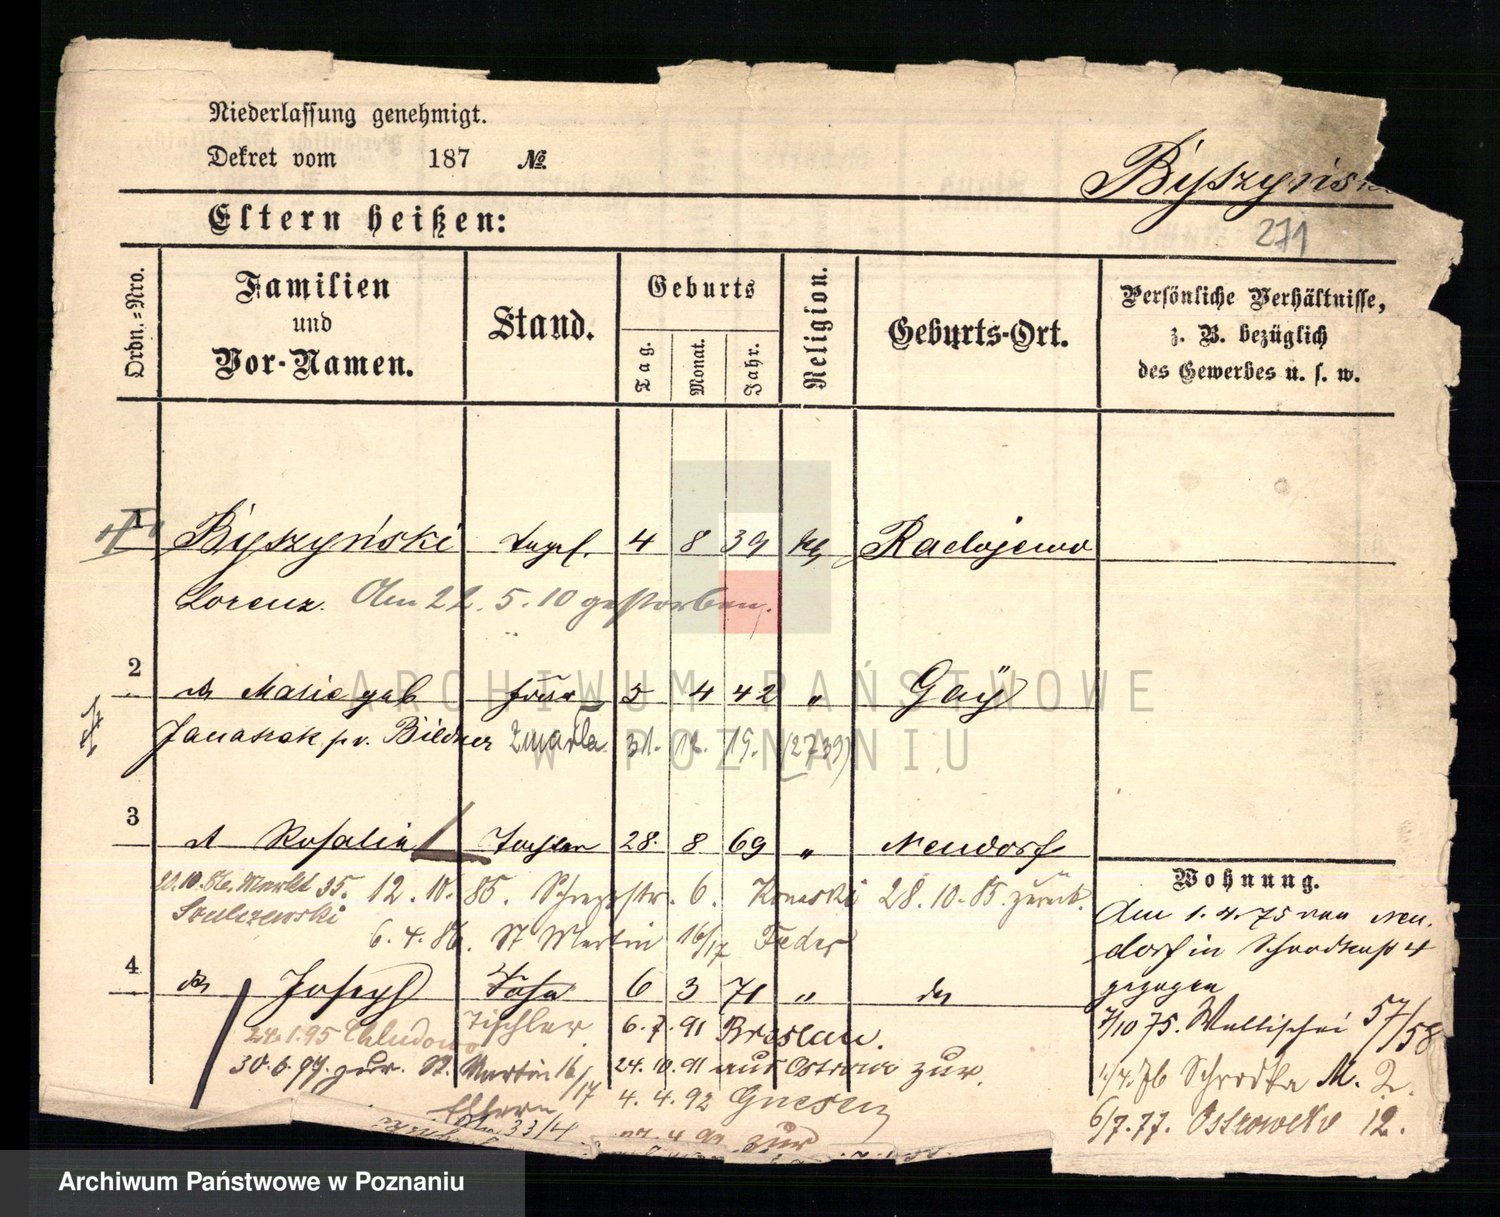 Niederlassung genehmigt.
Dekret vom 187 №
Byszyńsk
Eltern heißen:
271
Ordn.-Nro.
Familien
und
Vor-Namen.
Stand.
Geburts
Tag.
Monat.
Jahr.
Religion.
Geburts-Ort.
Persönliche Verhältnisse,
z. B. bezüglich
des Gewerbes u. s. w.
1 Byszyński 4 8 39 Radojewo
Lorenz. Am 22.5.10 gestorben.
2 Marie geb frau 5 4 42 " Gay
Janaszak Bildner zmarła 31. 12. 19. (2739)
3 Rosalie Tochter 28. 8 69 " Neudorf
Markt 35. 12.10.85. 6. 28.10.85. zurück.
6.4.86. St Martin 16/17 Feder
4 Joseph Sohn 6 3 71 "
Tischler. 6.7.91 Breslau.
24.1.95 Chludowo
30.6.97. zur. St. Martin 16/17
24.10.91 aus Ostrowo zur.
4.4.92 Gnesen
Eltern
33/4
zur
Wohnung.
Am 1.4.75 von Neu-
dorf in 4
gezogen
7/10 75. Wallischei 57/58
1/4.76 Schrodka M. 2.
6/7.77. Ostrowek 12.
ARCHIWUM PAŃSTWOWE
W POZNANIU
Archiwum Państwowe w Poznaniu